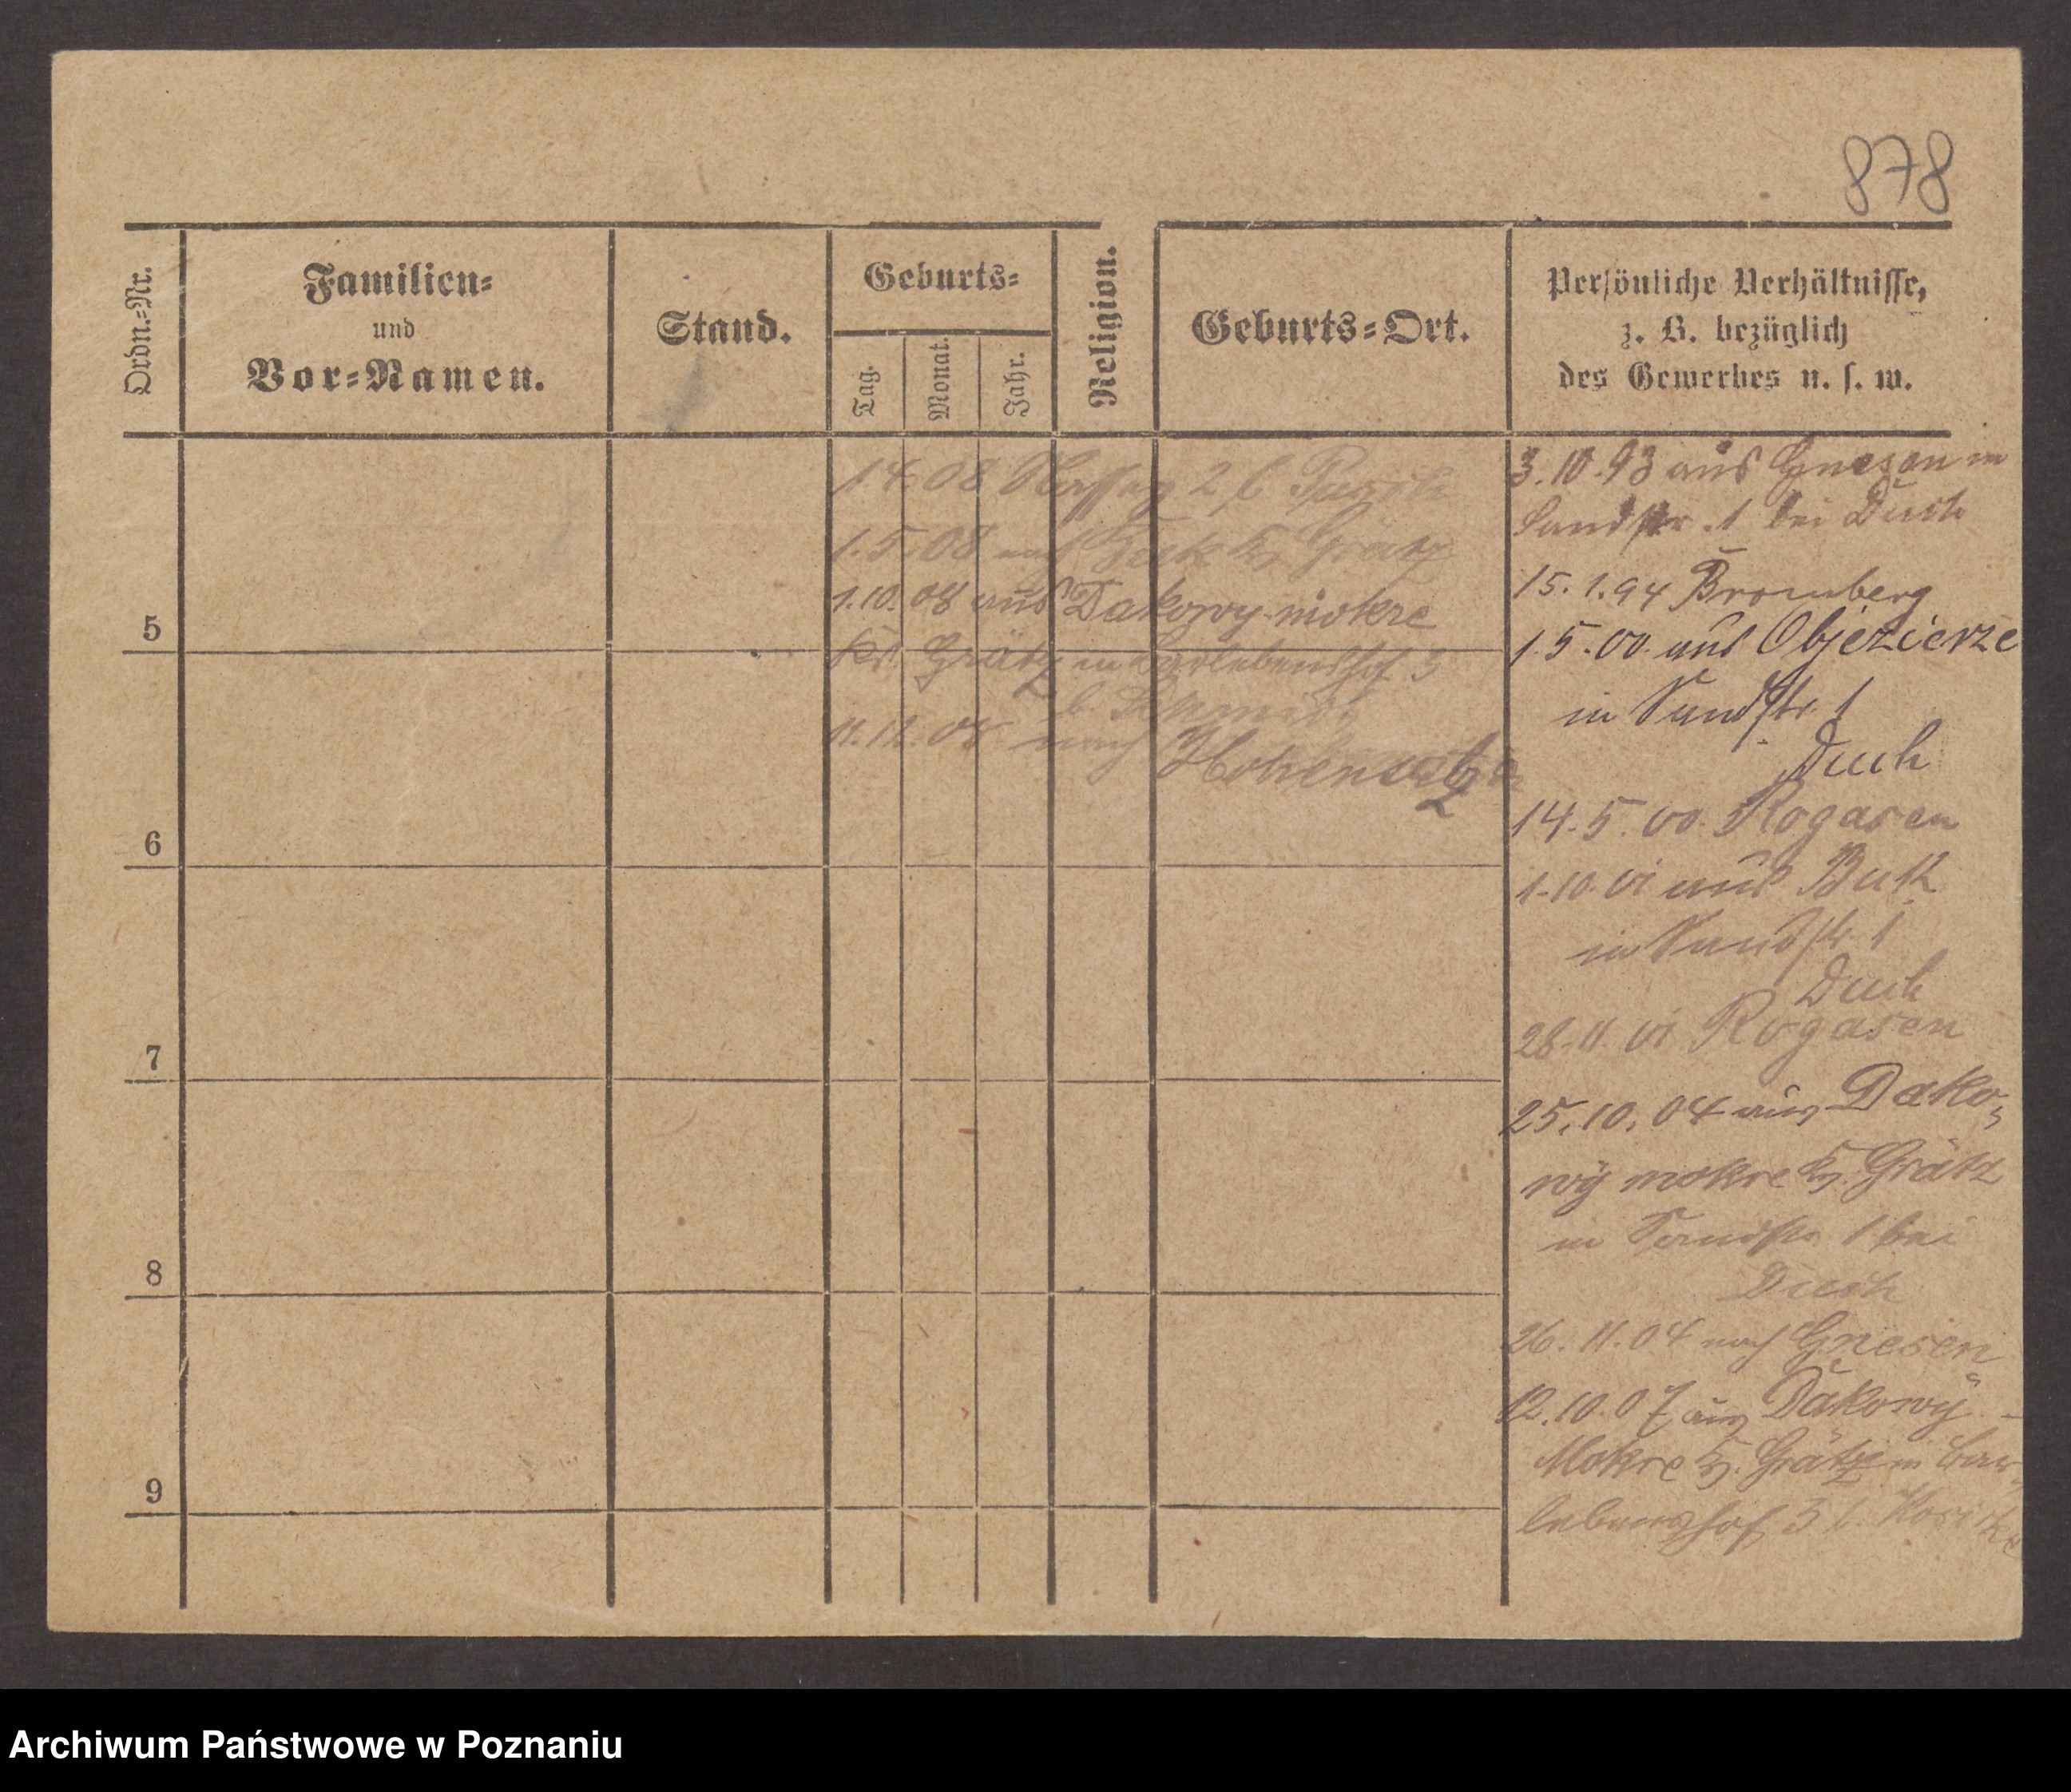 878
Ordn.-Nr.
Familien-
und
Vor-Namen.
Stand.
Geburts-
Tag.
Monat.
Jahr.
Religion.
Geburts-Ort.
Persönliche Verhältnisse,
z. B. bezüglich
des Gewerbes u. s. w.
1.4.08 2 b
1.5.08 nach Grätz
1.10.08 aus Dakowy mokre
Grätz in 3
b.
11.11.08 nach Hohensalza
3.10.93 aus Gnesen in
Sandstr. 1 bei Duch
15.1.94 Bromberg
1.5.00 aus Objezierze
in Sandstr. 1
Duch
14.5.00 Rogasen
1.10.01 aus Buk
in Sandstr. 1
Duch
28.11.01 Rogasen
25.10.04 aus Dako-
wy mokre Kr. Grätz
in Sandstr. 1 bei
Duch
26.11.04 nach Gnesen
12.10.07 aus Dakowy-
Mokre Kr. Grätz in
lebenshof 3 b.
5
6
7
8
9
Archiwum Państwowe w Poznaniu